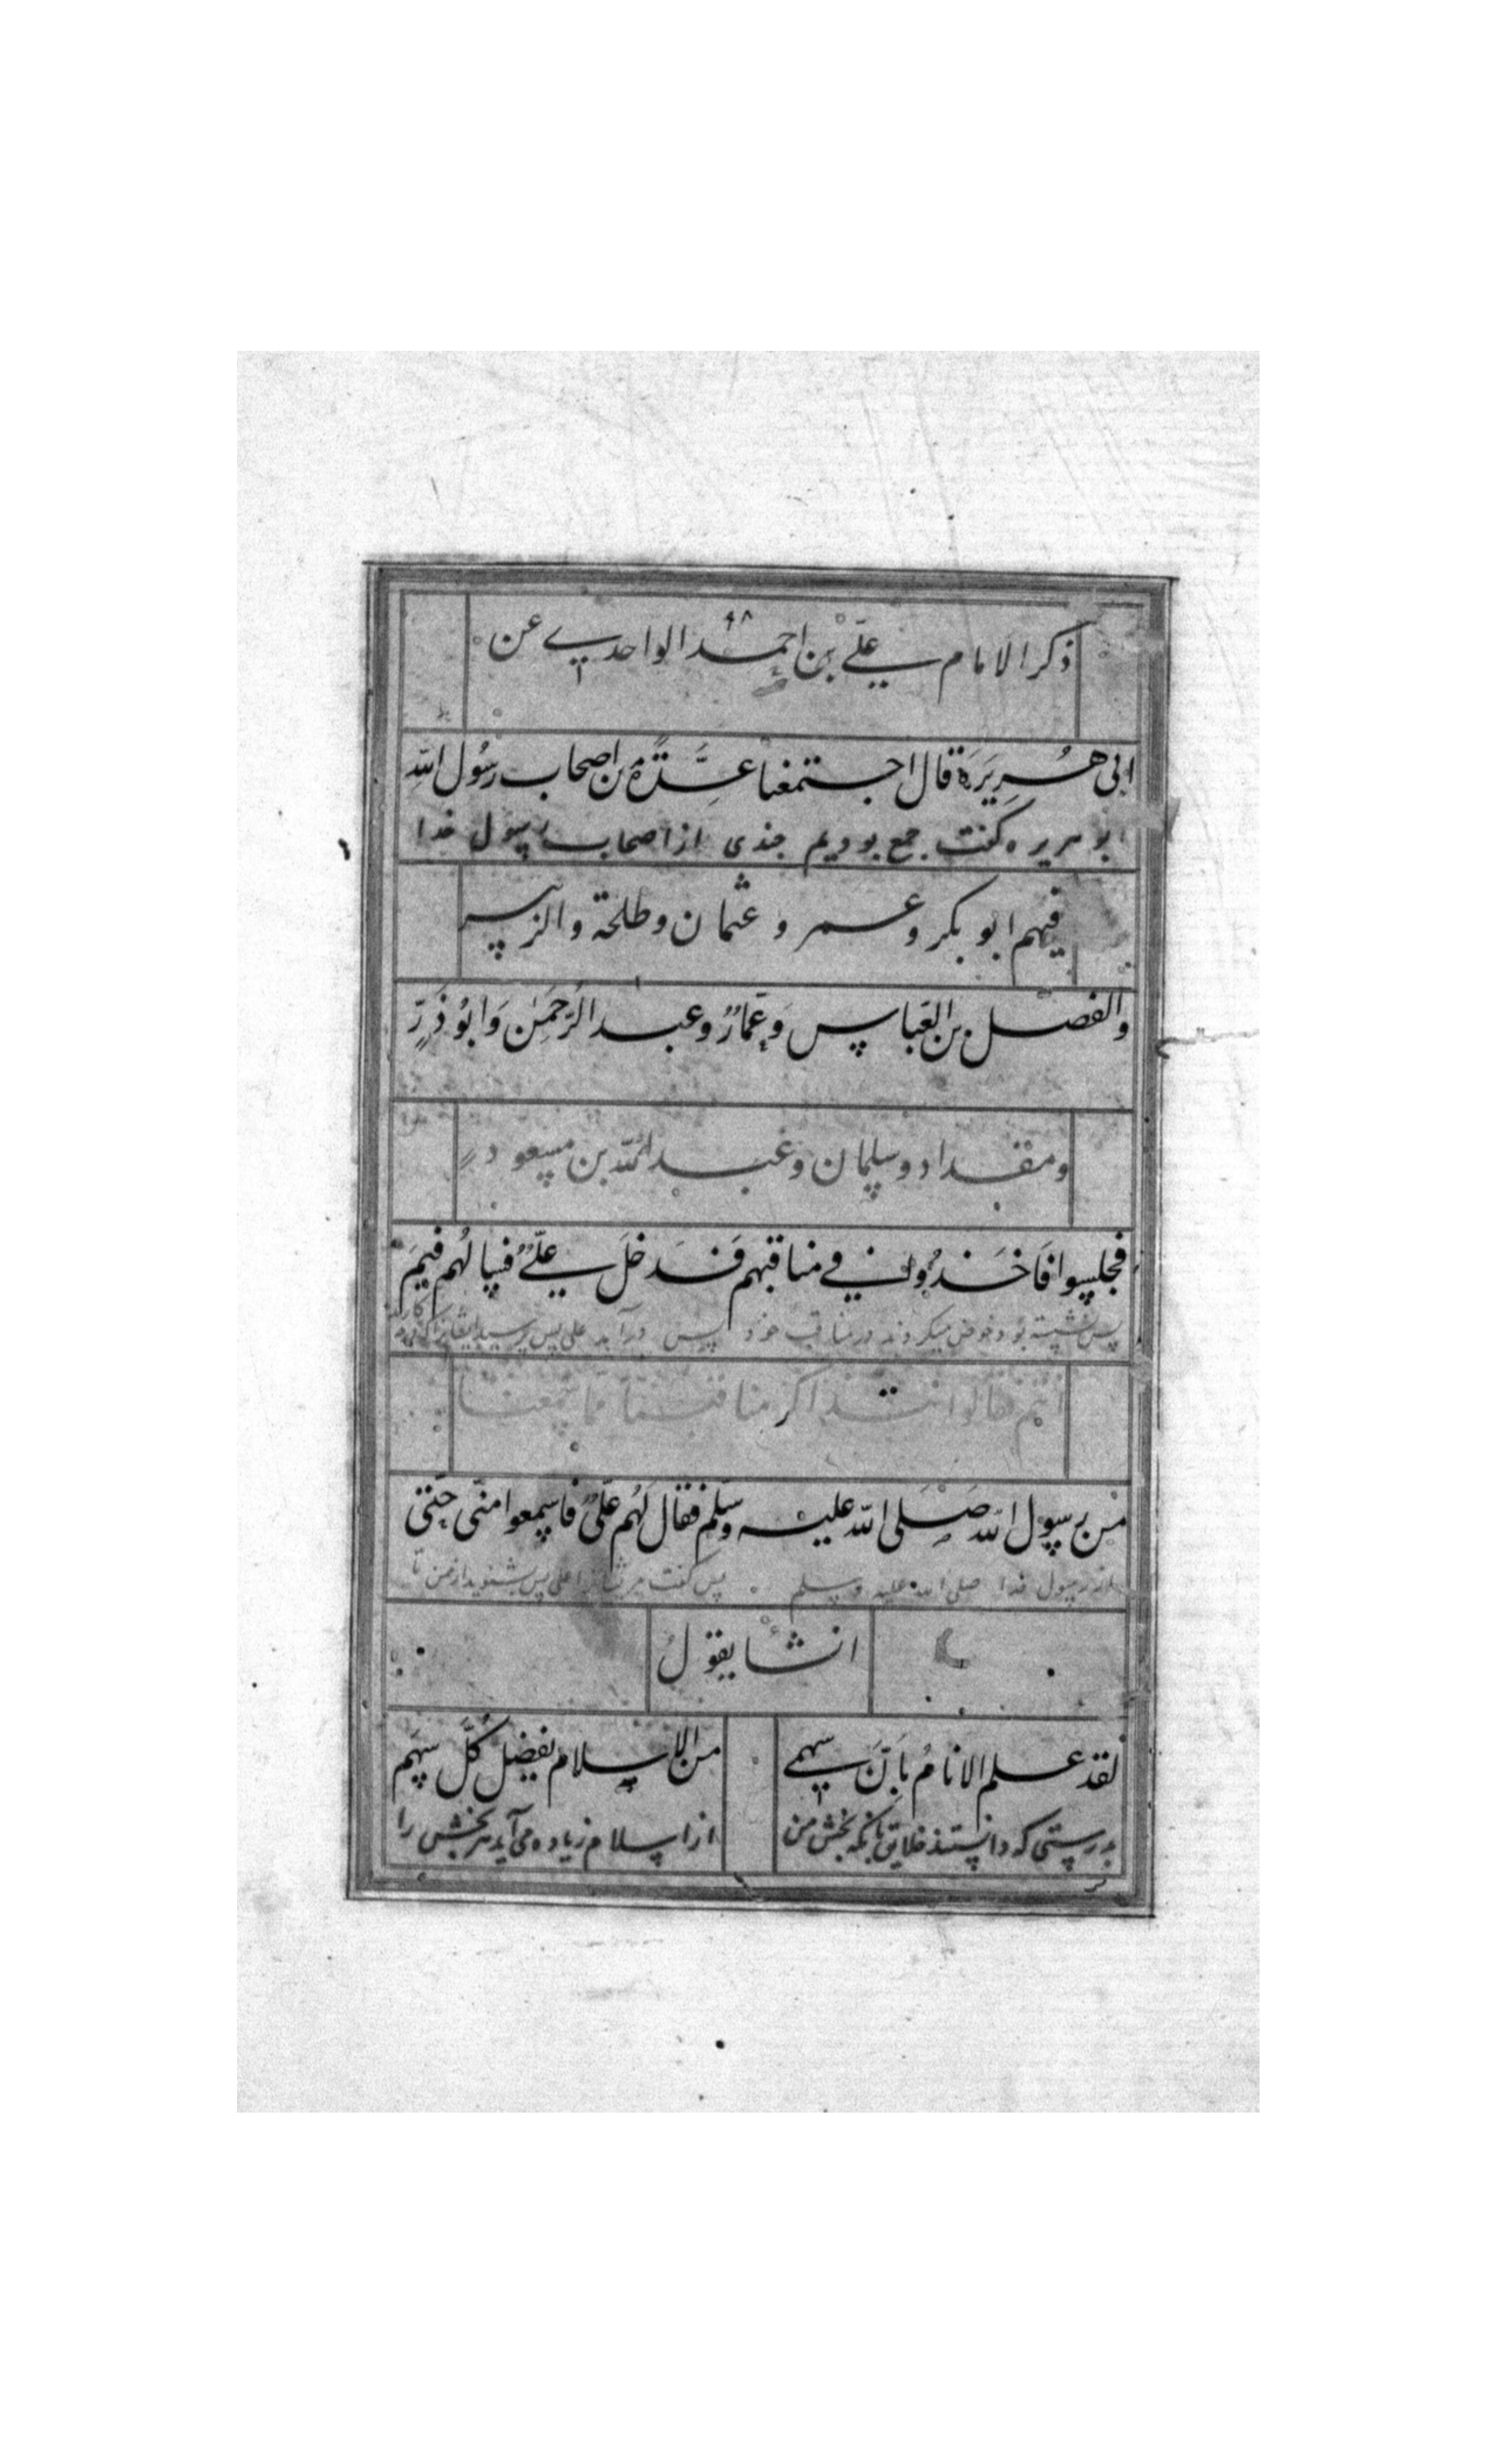 ذكر الامام علي بن احمد الواحدي عن
ابی هُرِيَرَة قال اجتمعنا عِدَّةٌ من اصحاب رسُول اللهِ
ابو هریره گفت جمع بودیم چندی از اصحاب رسول خدا
فيهم ابو بكر وعمر وعثمان وطلحة والزبير
والفضل بن العَباس وَعَمارٌ وعبد الرَحمٰن وَابُو ذَرٍّ
ومقداد وسلمان وعبد الله بن مسعودٍ
فجلسوا فَاَخَذُوا في مناقبهم فَدَخَلَ عليٌّ فسالهُم فيمَ
پس نشسته بود وخوض میکردند در مناقب خود پس در آمد علی پس پرسید
انتم قالوا نتذاكر مناقبنا مما سمعنا
من رسول الله صَلى الله عليه وسلم فقال لَهُم عَلىٌّ فاسمعوا منّى حتى
از رسول خدا صلى الله علیه وسلم پس گفت مر ایشانرا علی پس بشنوید از من تا
انشا يقولُ
لقد علم الانامُ بِاَنّ سهمي
من الاسلام يفضل كُلَّ سهم
بدرستی که دانستند خلایق بانکه بخش من
از اسلام زیاده می آید هر بخش را